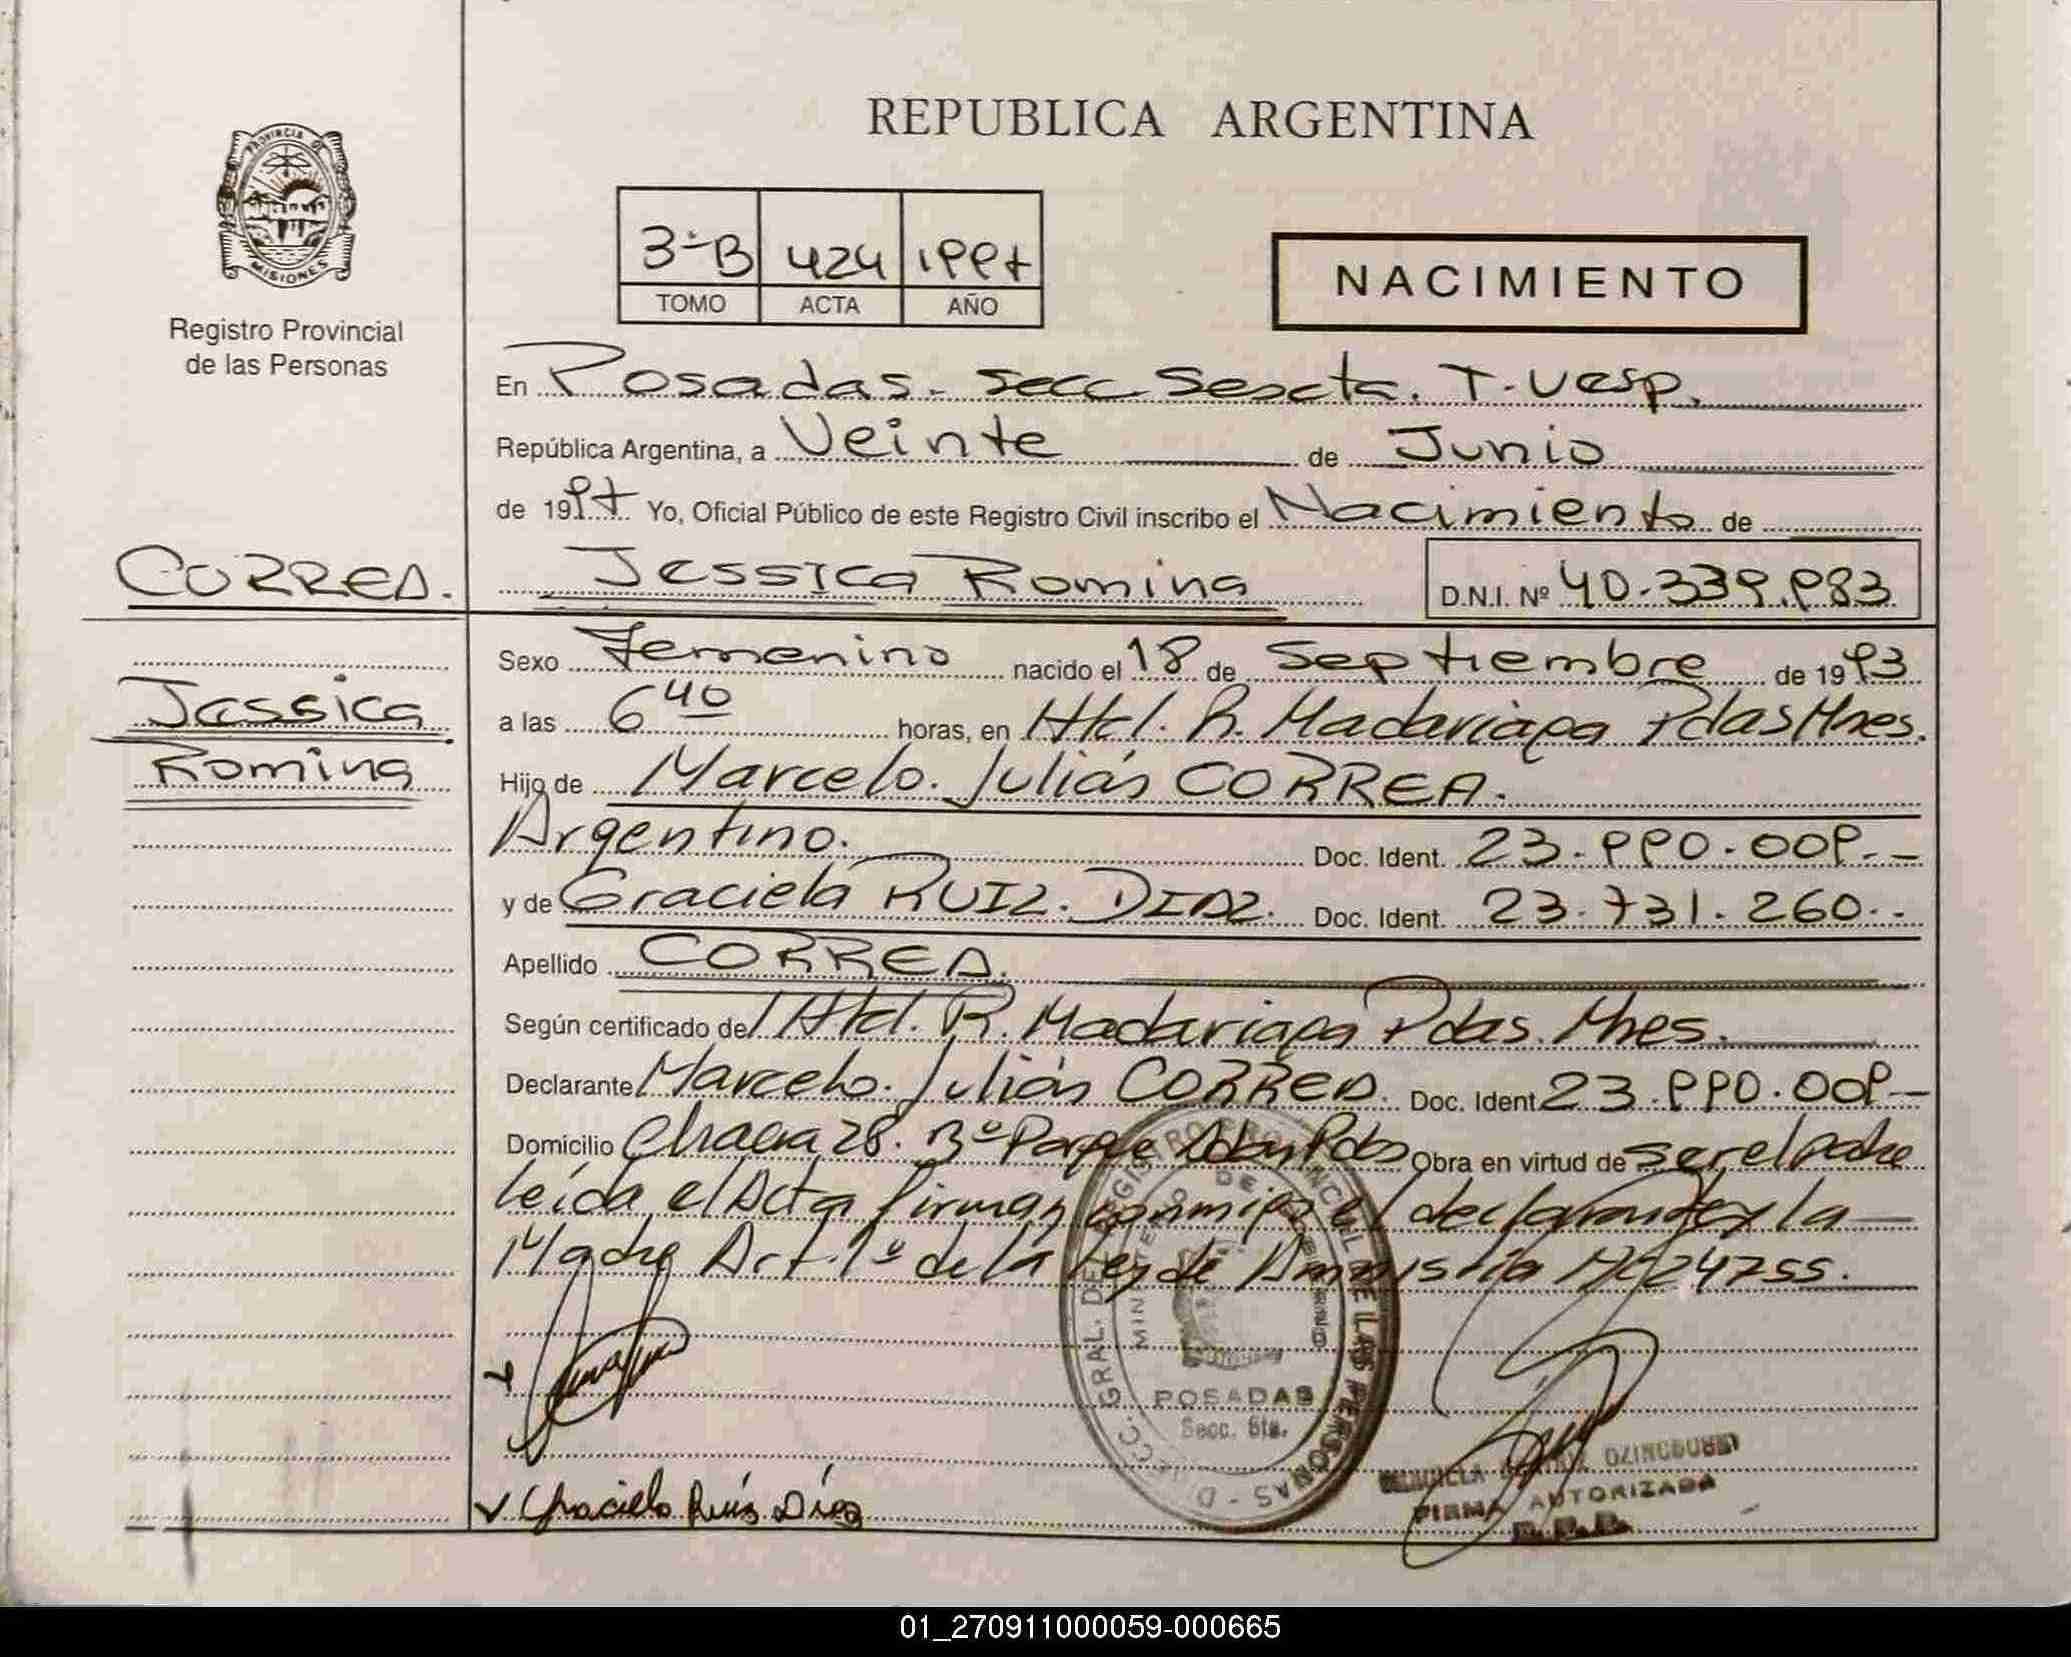 REPUBLICA ARGENTINA
PROVINCIA DE
MISIONES
Registro Provincial
de las Personas
3º-B 424 1997
TOMO ACTA AÑO
NACIMIENTO
En Posadas. Secc Sexcta. T. Vesp.
República Argentina, a Veinte de Junio
de 1997 Yo, Oficial Público de este Registro Civil inscribo el Nacimiento de
CORREA. Jessica Romina D.N.I. Nº 40.339.983
Sexo Femenino nacido el 18 de Septiembre de 1993
Jessica
Romina
a las 6 40 horas, en Htal. R. Madariaga Pdas Mnes.
Hijo de Marcelo Julián CORREA.
Argentino. Doc. Ident. 23.990.009.-
y de Graciela RUIZ. DIAZ. Doc. Ident. 23.731.260.-
Apellido CORREA.
Según certificado del Htal. R. Madariaga Pdas. Mnes.
Declarante Marcelo Julián CORREA. Doc. Ident 23.990.009-
Domicilio Chacra 28. Bº Parque Pdas Obra en virtud de ser el padre
leída el Acta firman conmigo el declarante y la
Madre Art. 1º de la Ley de Amnistía Nº 24755.
DIRECC. GRAL. DEL REGISTRO PROVINCIAL DE LAS PERSONAS
MINISTERIO DE GOBIERNO
POSADAS
Secc. 6ta.
Graciela Ruiz Díaz
FIRMA AUTORIZADA
R.P.P.
01_270911000059-000665